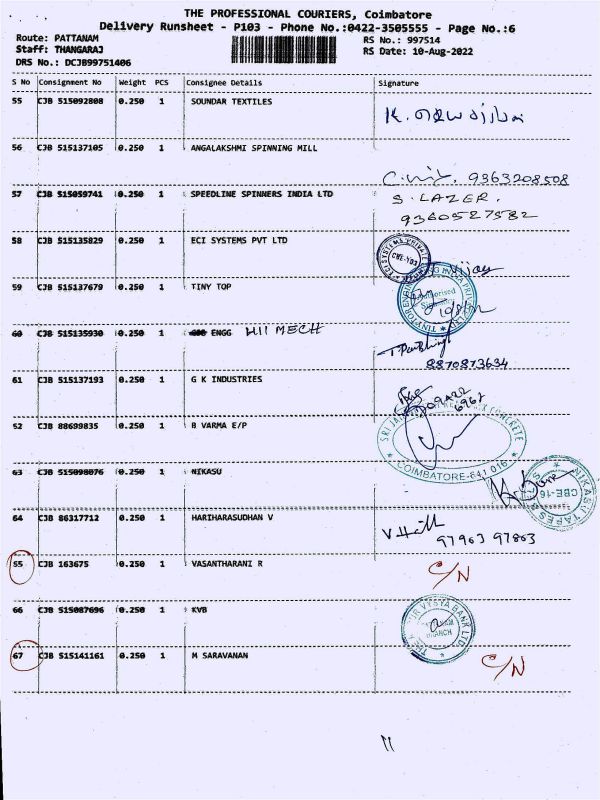 THE PROFESSIONAL COURIERS, Coimbatore
Delivery Runsheet - P103 - Phone No.:0422-3505555 - Page No.:6
Route: PATTANAM RS No.: 997514
Staff: THANGARAJ RS Date: 10-Aug-2022
DRS No.: DCJB99751406
S No Consignment No Weight PCS Consignee Details Signature
55 CJB 515092808 0.250 1 SOUNDAR TEXTILES
K.
56 CJB 515137105 0.250 1 ANGALAKSHMI SPINNING MILL
9363208508
57 CJB 515059741 0.250 1 SPEEDLINE SPINNERS INDIA LTD S. LAZER.
9360527582
58 CJB 515135829 0.250 1 ECI SYSTEMS PVT LTD
ECI SYSTEMS PRIVATE
CHE-103
Vijay
59 CJB 515137679 0.250 1 TINY TOP
Authorised
10/8/22
60 CJB 515135930 0.250 1 ENGG HII MECH
8870873634
61 CJB 515137193 0.250 1 G K INDUSTRIES
52 CJB 88699835 0.250 1 B VARMA E/P
CONCRETE
COIMBATORE-641 016
63 CJB 515098076 0.250 1 NIKASU
NIKASU TAPES
CBE-16
64 CJB 86317712 0.250 1 HARIHARASUDHAN V
97963 97863
55 CJB 163675 0.250 1 VASANTHARANI R C/N
66 CJB 515087696 0.250 1 KVB
VYSYA BANK LTD
BRANCH
67 CJB 515141161 0.250 1 M SARAVANAN C/N